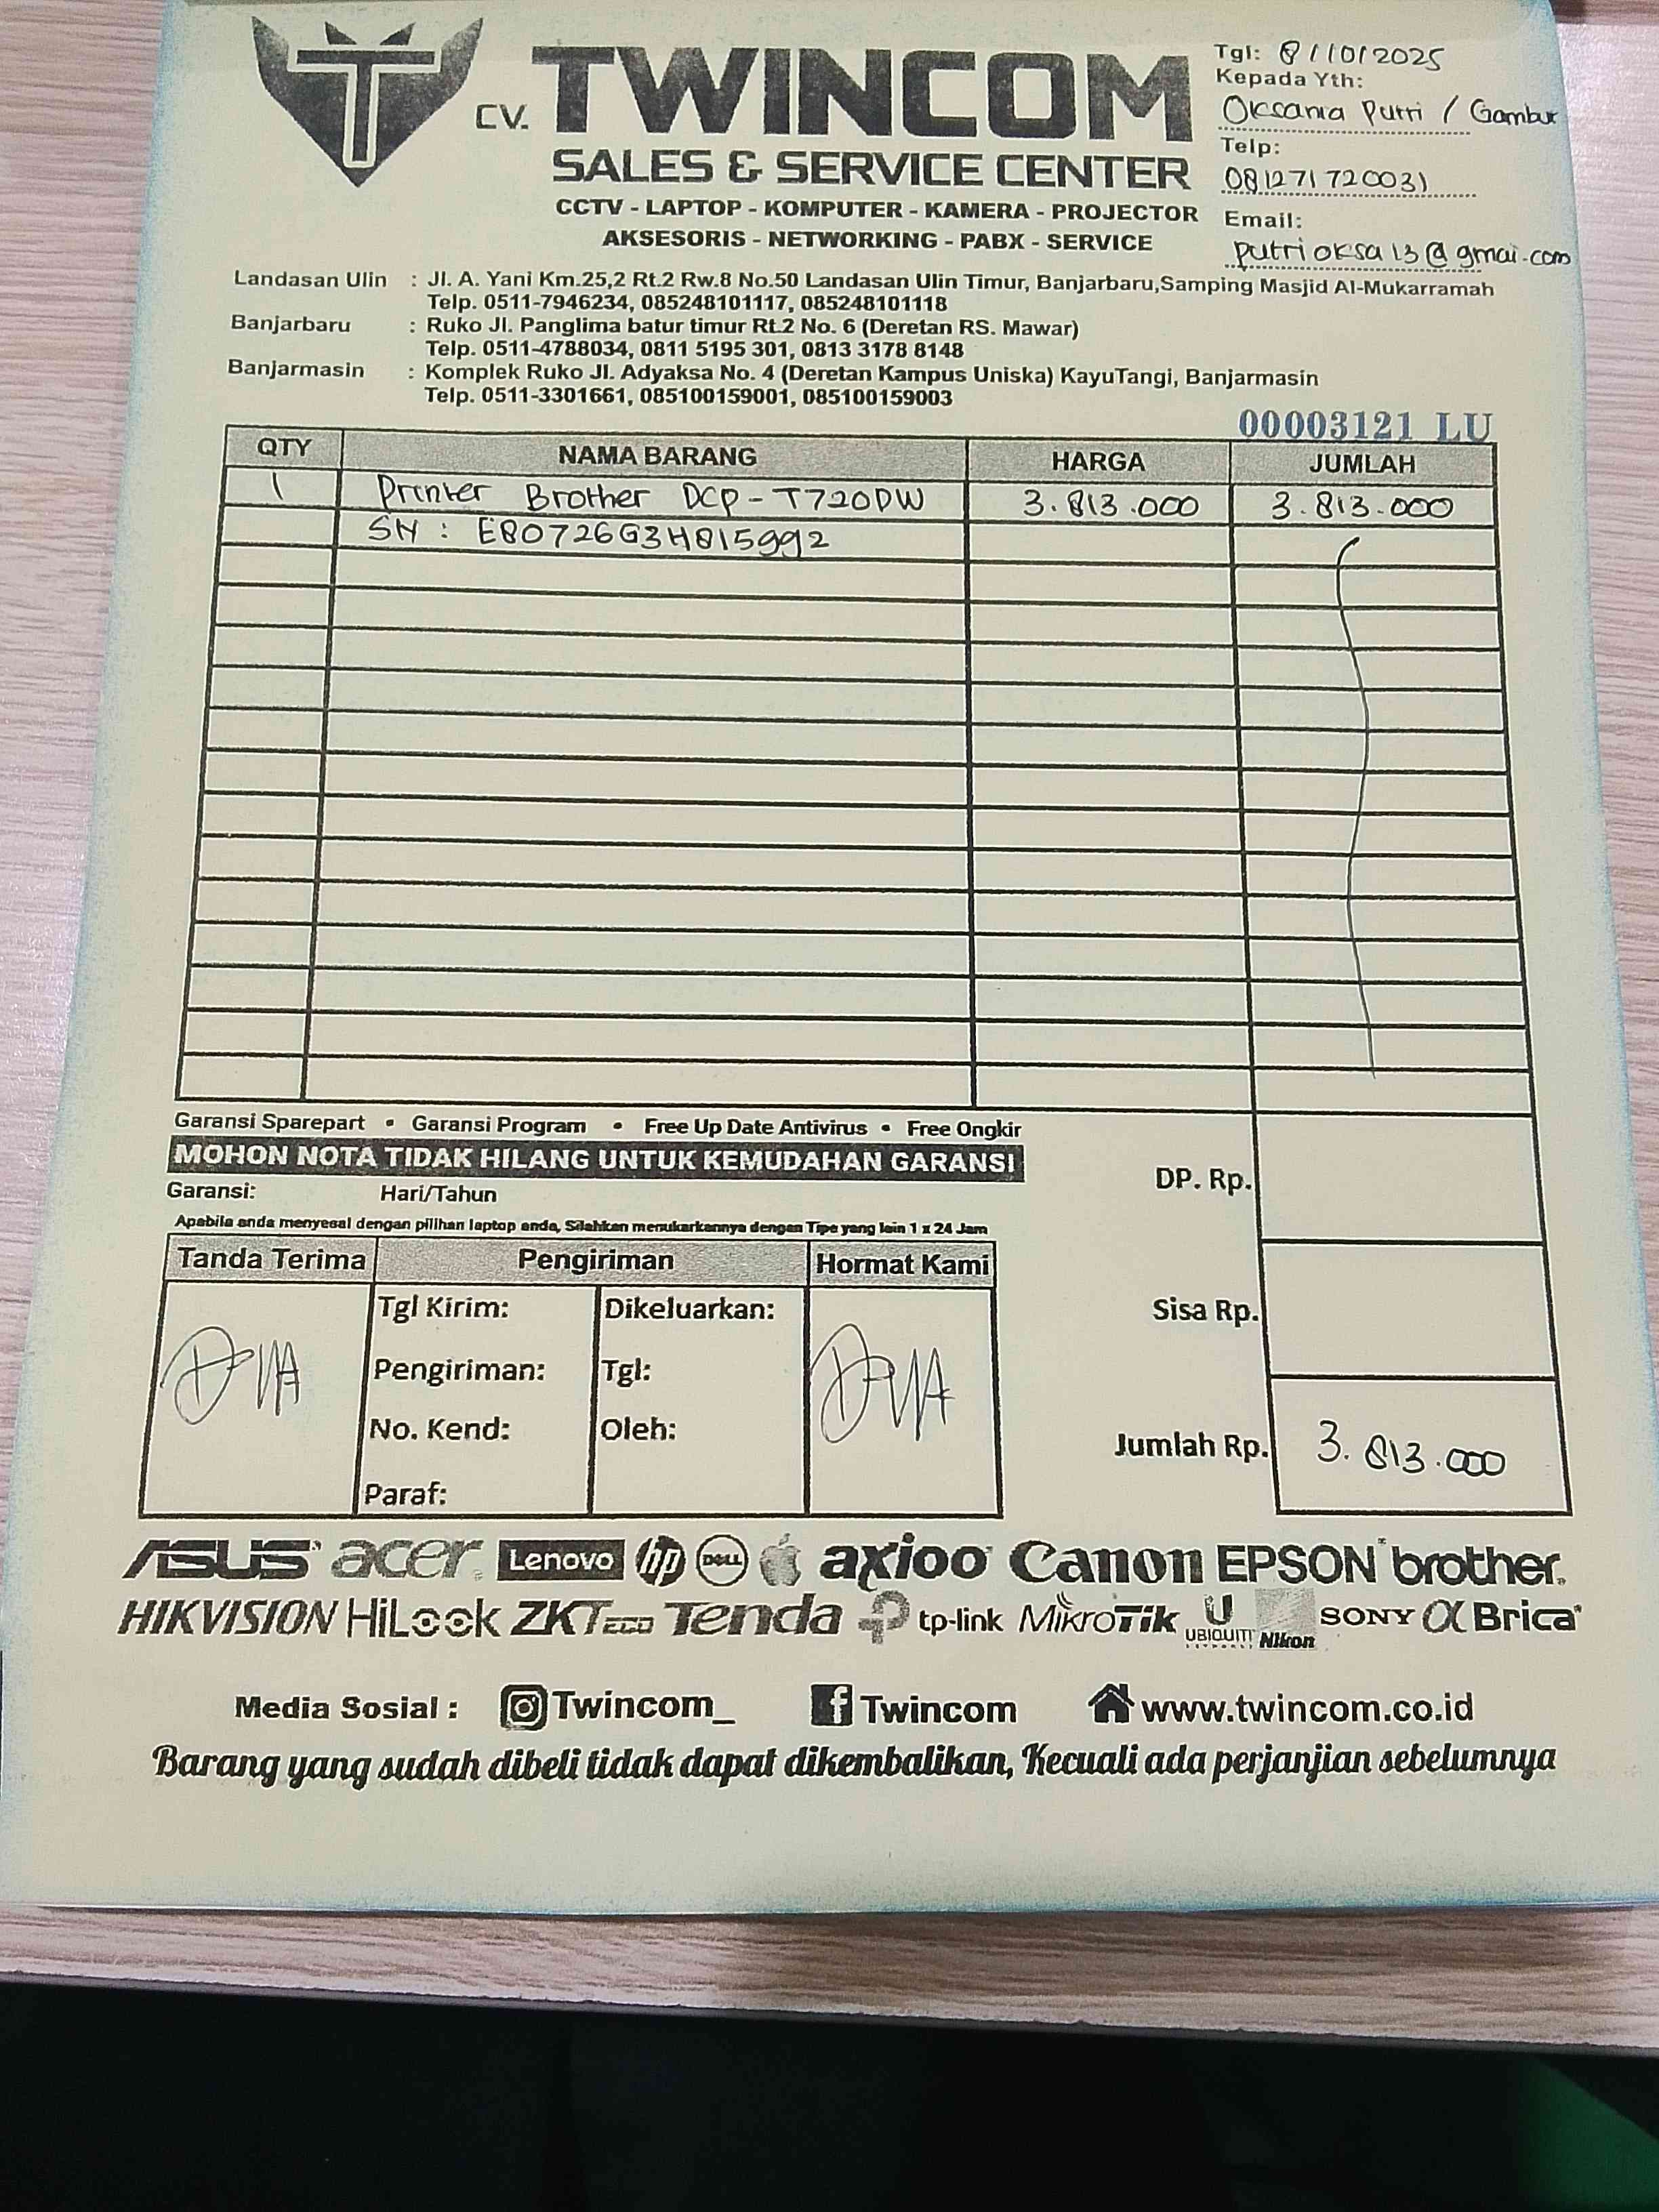 CV. TWINCOM
SALES & SERVICE CENTER
CCTV - LAPTOP - KOMPUTER - KAMERA - PROJECTOR
AKSESORIS - NETWORKING - PABX - SERVICE
Tgl: 8/10/2025
Kepada Yth:
Oksania Putri / Gambut
Telp:
081271720031
Email:
putrioksa13@gmai.com
Landasan Ulin : Jl. A. Yani Km.25,2 Rt.2 Rw.8 No.50 Landasan Ulin Timur, Banjarbaru,Samping Masjid Al-Mukarramah
Telp. 0511-7946234, 085248101117, 085248101118
Banjarbaru : Ruko Jl. Panglima batur timur Rt.2 No. 6 (Deretan RS. Mawar)
Telp. 0511-4788034, 0811 5195 301, 0813 3178 8148
Banjarmasin : Komplek Ruko Jl. Adyaksa No. 4 (Deretan Kampus Uniska) KayuTangi, Banjarmasin
Telp. 0511-3301661, 085100159001, 085100159003
00003121 LU
QTY NAMA BARANG HARGA JUMLAH
1 Printer Brother DCP-T720DW 3.813.000 3.813.000
SN : E80726G3H815992
Garansi Sparepart • Garansi Program • Free Up Date Antivirus • Free Ongkir
MOHON NOTA TIDAK HILANG UNTUK KEMUDAHAN GARANSI
Garansi: Hari/Tahun
Apabila anda menyesal dengan pilihan laptop anda, Silahkan menukarkannya dengan Tipe yang lain 1 x 24 Jam
DP. Rp.
Sisa Rp.
Jumlah Rp. 3.813.000
Tanda Terima Pengiriman Hormat Kami
Tgl Kirim: Dikeluarkan:
Pengiriman: Tgl:
No. Kend: Oleh:
Paraf:
ASUS acer Lenovo hp DELL axioo Canon EPSON brother
HIKVISION HiLook ZKTeco Tenda tp-link MikroTik UBIQUITI Nikon SONY α Brica
Media Sosial : Twincom_ Twincom www.twincom.co.id
Barang yang sudah dibeli tidak dapat dikembalikan, Kecuali ada perjanjian sebelumnya